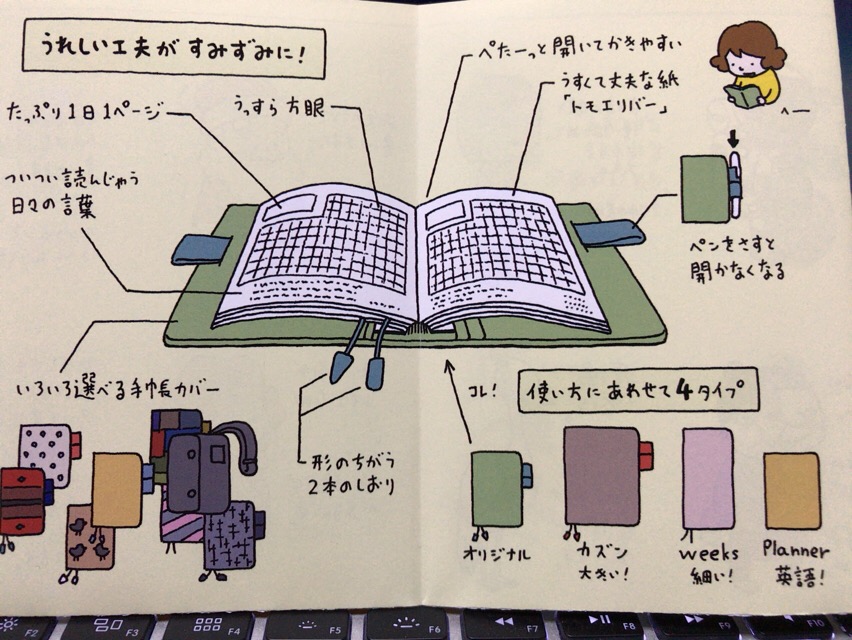 うれしい工夫が すみずみに!
ぺたーっと 開いてかきやすい
うすくて丈夫な紙
「トモエリバー」
へー
たっぷり1日1ページ
うっすら方眼
ついつい読んじゃう
日々の言葉
ペンをさすと
開かなくなる
いろいろ選べる手帳カバー
形のちがう
2本のしおり
コレ!
使い方にあわせて4タイプ
オリジナル
カズン
大きい!
weeks
細い!
Planner
英語!
F3
F4
F5
F6
F7
F8
F9
F10